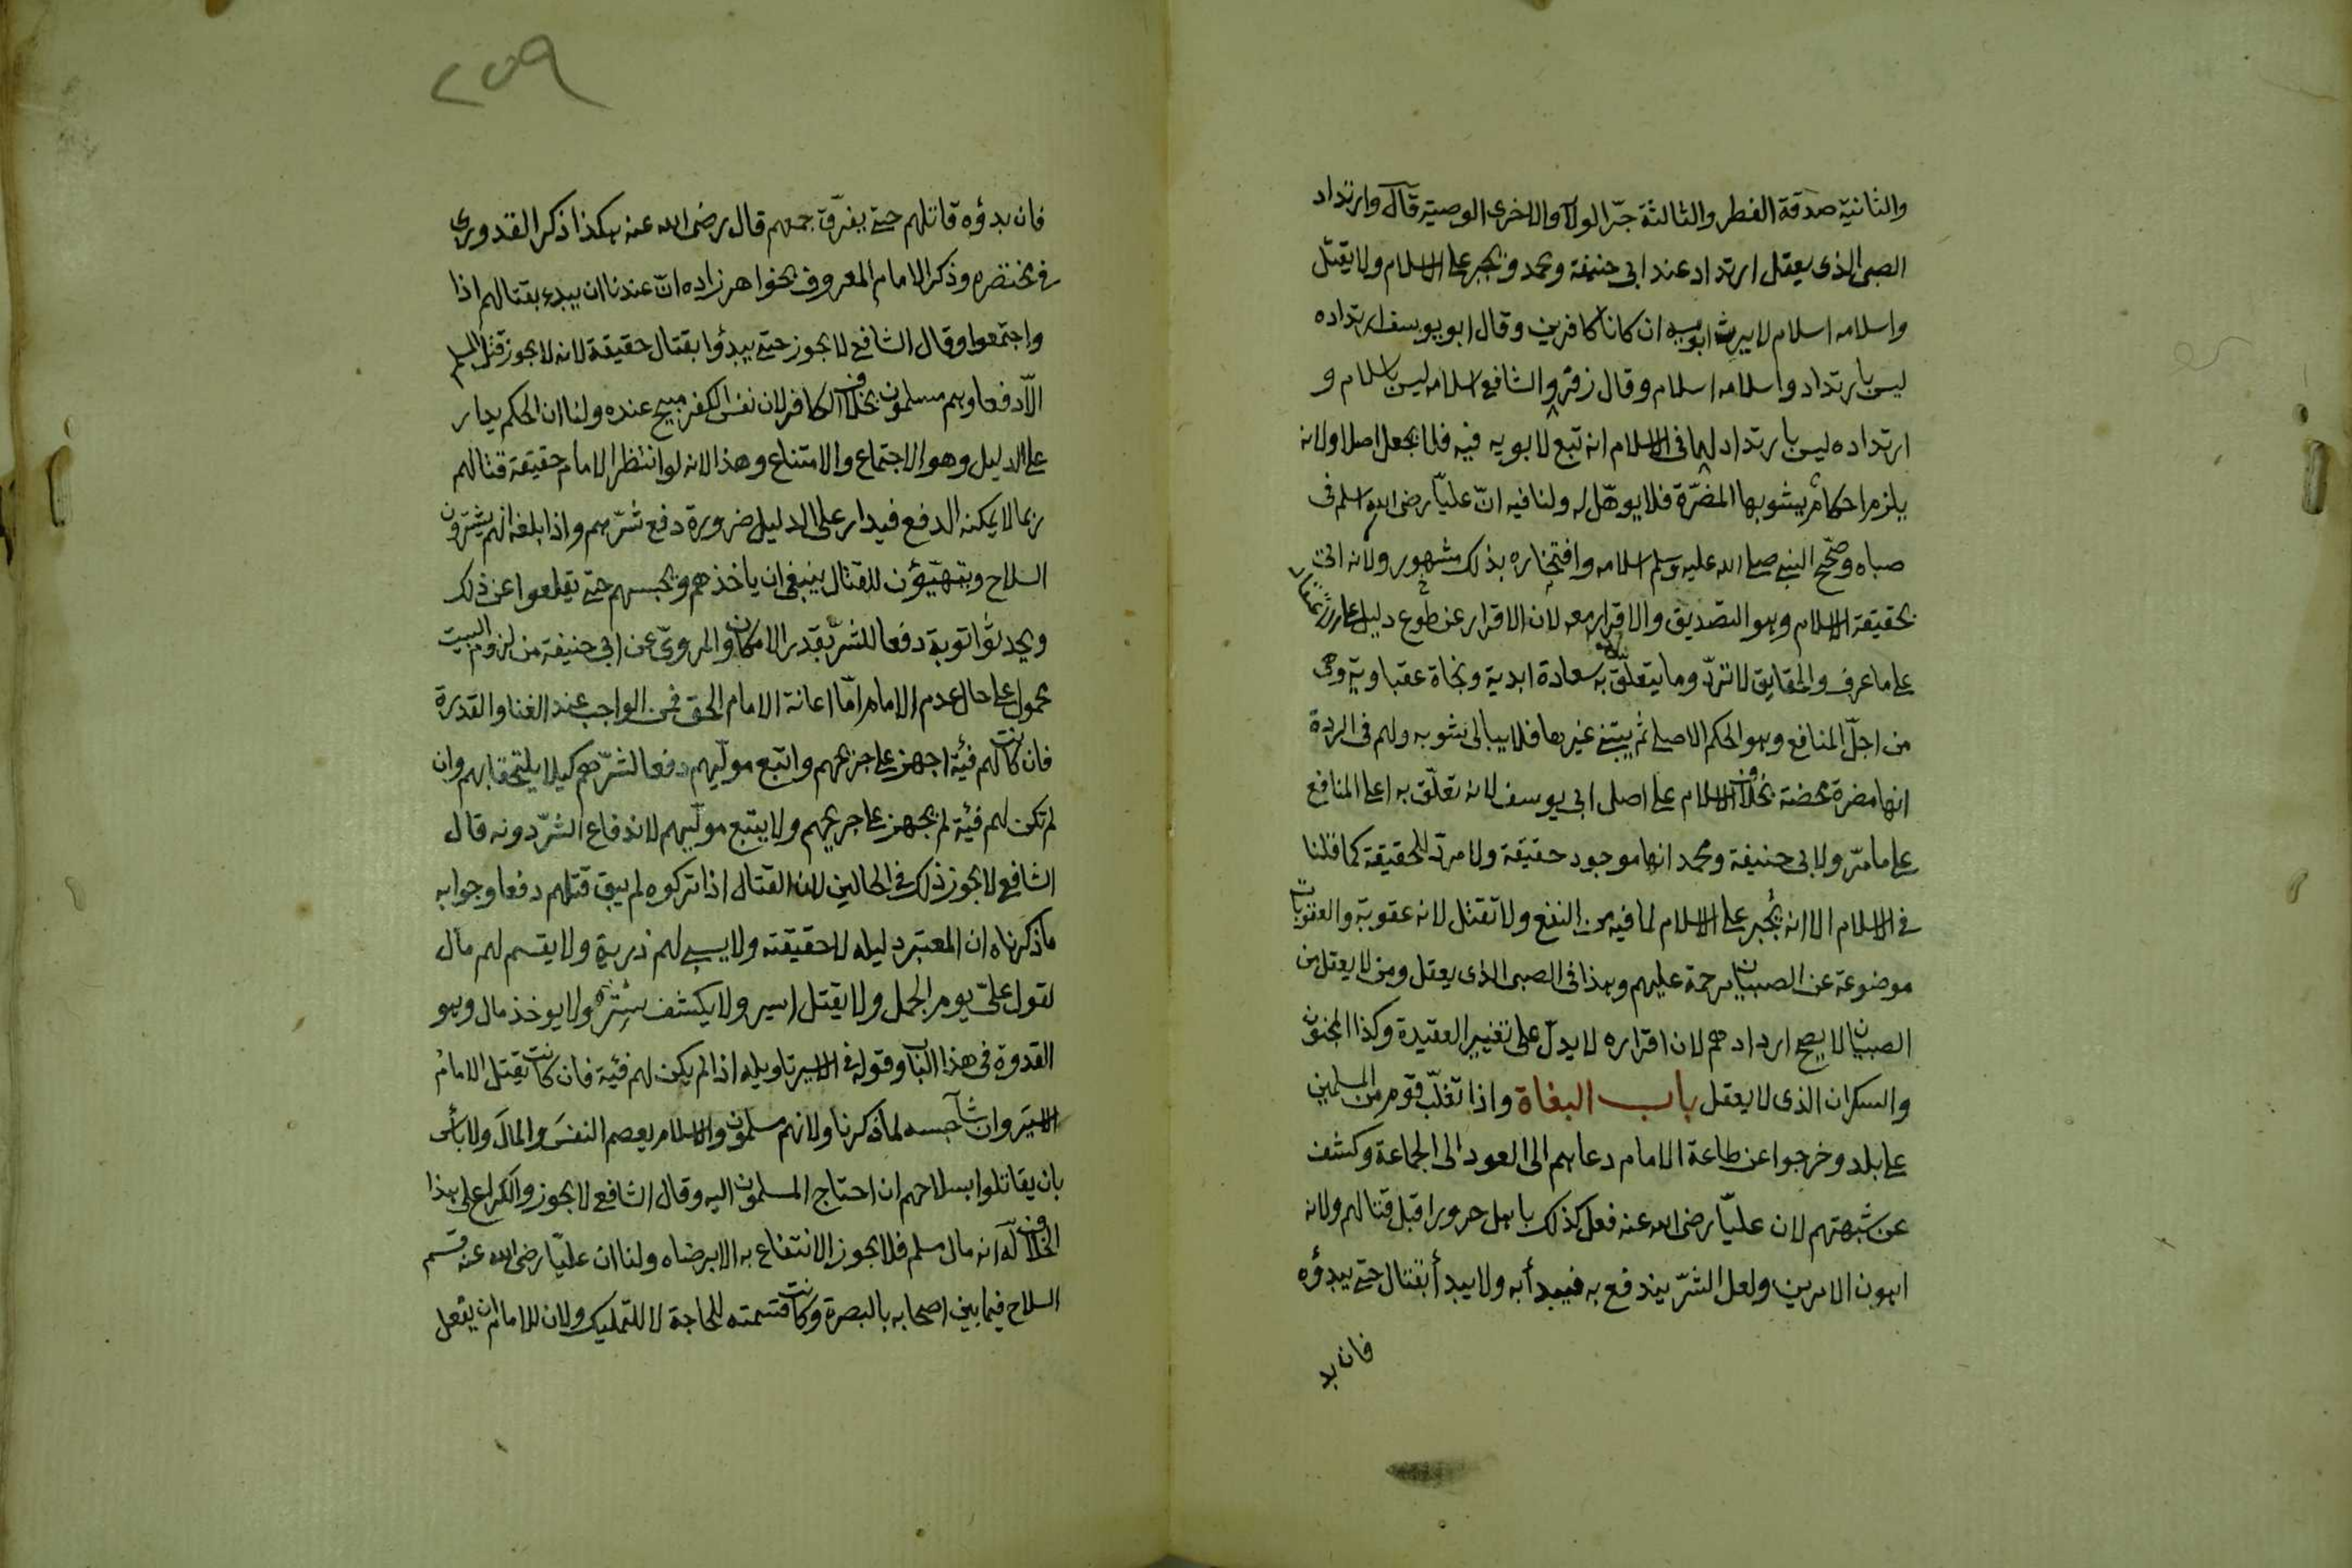 والثانية صدقة الفطر والثالثة جرّ الولآ والاخرى الوصية قال وارتداد
الصبى الذى يعقل ارتداد عند ابى حنيفة ومحمد ويجبر على الاسلام ولا يقتل
واسلامه اسلام لا يرث ابويه ان كانا كافرين وقال ابو يوسف ارتداده
ليس بارتداد واسلامه اسلام وقال زفر والشافعى اسلامه ليس باسلام و
ارتداده ليس بارتداد لهما فى الاسلام انه تبع لابويه فيه فلا يجعل اصلا ولانه
يلزم احكام يشوبها المضرّة فلا يوهّل له ولنا فيه انّ عليّا رضى الله اسلم فى
صباه وصحّح النبى صلى الله عليه وسلم اسلامه وافتخاره بذلك مشهور ولانه اتى
بحقيقة الاسلام وهو التصديق والاقرار معه لان الاقرار عن طوع دليل على
على ما عرف والحقايق لا تردّ وما يتعلّق به سعادة ابدية ونجاة عقباوية وهى
من اجلّ المنافع وهو الحكم الاصلى ثم يبتنى غيرها فلا يبالى بشوبه ولهم فى الردة
انها مضرة محضة بخلاف الاسلام على اصل ابى يوسف لانه تعلّق به اعلى المنافع
على ما مرّ ولابى حنيفة ومحمد انها موجود حقيقة ولا مردّ للحقيقة كما قلنا
فى الاسلام الا انه يُجبر على الاسلام لما فيه من النفع ولا تقتل لانه عقوبة والعقوبات
موضوعة عن الصبيان مرحمة عليهم وهذا فى الصبى الذى يعقل ومن لا يعقل من
الصبيان لا يصح ارتدادهم لان اقراره لا يدلّ على تغيير العقيدة وكذا المجنون
والسكران الذى لا يعقل باب البغاة واذا تغلّب قوم من المسلمين
على بلد وخرجوا عن طاعة الامام دعاهم الى العود الى الجماعة وكشف
عن شبهتهم لان عليّا رضى الله عنه فعل كذلك باهل حرورا قبل قتالهم ولانه
اهون الامرين ولعل الشرّ يندفع به فيبدأ به ولا يبدأ بقتال حتى يبدؤه
فان بد
٢٥٩
فان بدؤه قاتلهم حتى يفرّق جمعهم قال رضى الله عنه هكذا ذكر القدورى
فى مختصره وذكر الامام المعروف بخواهرزاده انّ عندنا ان يبدء بقتالهم اذا
واجتمعوا وقال الشافعى لا يجوز حتى يبدؤا بقتال حقيقة لانه لا يجوز قتل المسلم
الّا دفعا وهم مسلمون بخلاف الكافر لان نفس الكفر مبيح عنده ولنا ان الحكم يدار
على الدليل وهو الاجتماع والامتناع وهذا لانه لو انتظر الامام حقيقة قتالهم
ربما لا يمكنه الدفع فيدار على الدليل ضرورة دفع شرّهم واذا بلغه انهم يشترون
السلاح ويتهيّؤن للقتال ينبغى ان ياخذهم ويحبسهم حتى يقلعوا عن ذلك
ويحدثوا توبة دفعا للشرّ بقدر الامكان والمروىّ عن ابى حنيفة من لزوم البيت
محمول على حال عدم الامام امّا اعانة الامام الحق فمن الواجب عند الغنا والقدرة
فان كانت لهم فئية اجهز على جريحهم واتبع مولّيهم دفعا لشرّهم كيلا يلتحقا بهم وان
لم تكن لهم فئية لم يجهز على جريحهم ولا يتبع مولّيهم لاندفاع الشرّ دونه قال
الشافعى لا يجوز ذلك فى الحالين لان القتال اذا تركوه لم يبق قتلهم دفعا وجوابه
ما ذكرناه ان المعتبر دليله لا حقيقته ولا يسبى لهم ذرية ولا يقسم لهم مال
لقول علىّ يوم الجمل ولا يقتل اسير ولا يكشف ستر ولا يوخذ مال وهو
القدوة فى هذا الباب وقوله فى الاسير تاويله اذا لم يكن لهم فئية فان كانت يقتل الامامُ
الاسيَر وان شآ حبسه لما ذكرنا ولانهم مسلمون والاسلام يعصم النفسَ والمالَ ولا بأس
بان يقاتلوا بسلاحهم ان احتاج المسلمون اليه وقال الشافعى لا يجوز والكراع على هذا
الخلاف له انه مال مسلم فلا يجوز الانتفاع به الا برضاه ولنا ان عليّا رضى الله عنه قسم
السلاح فيما بين اصحابه بالبصرة وكانت قسمته للحاجة لا للتمليك ولان للامام ان يفعل